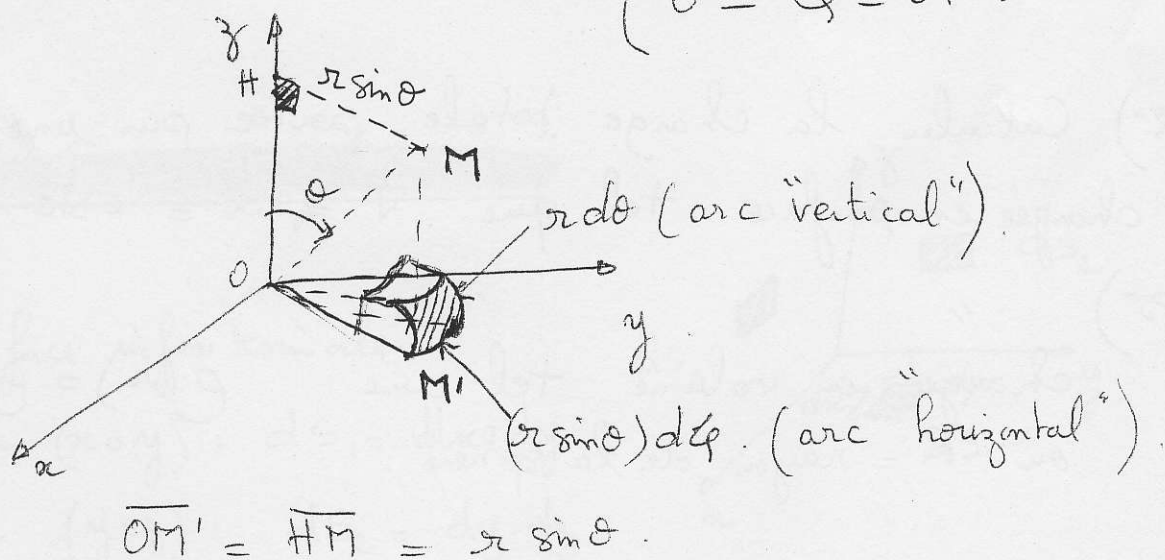 0 ≤ φ ≤ 2π
z
H
r sinθ
M
θ
r dθ (arc "vertical").
O
y
M'
(r sinθ) dφ. (arc "horizontal").
x
OM' = HM = r sinθ.